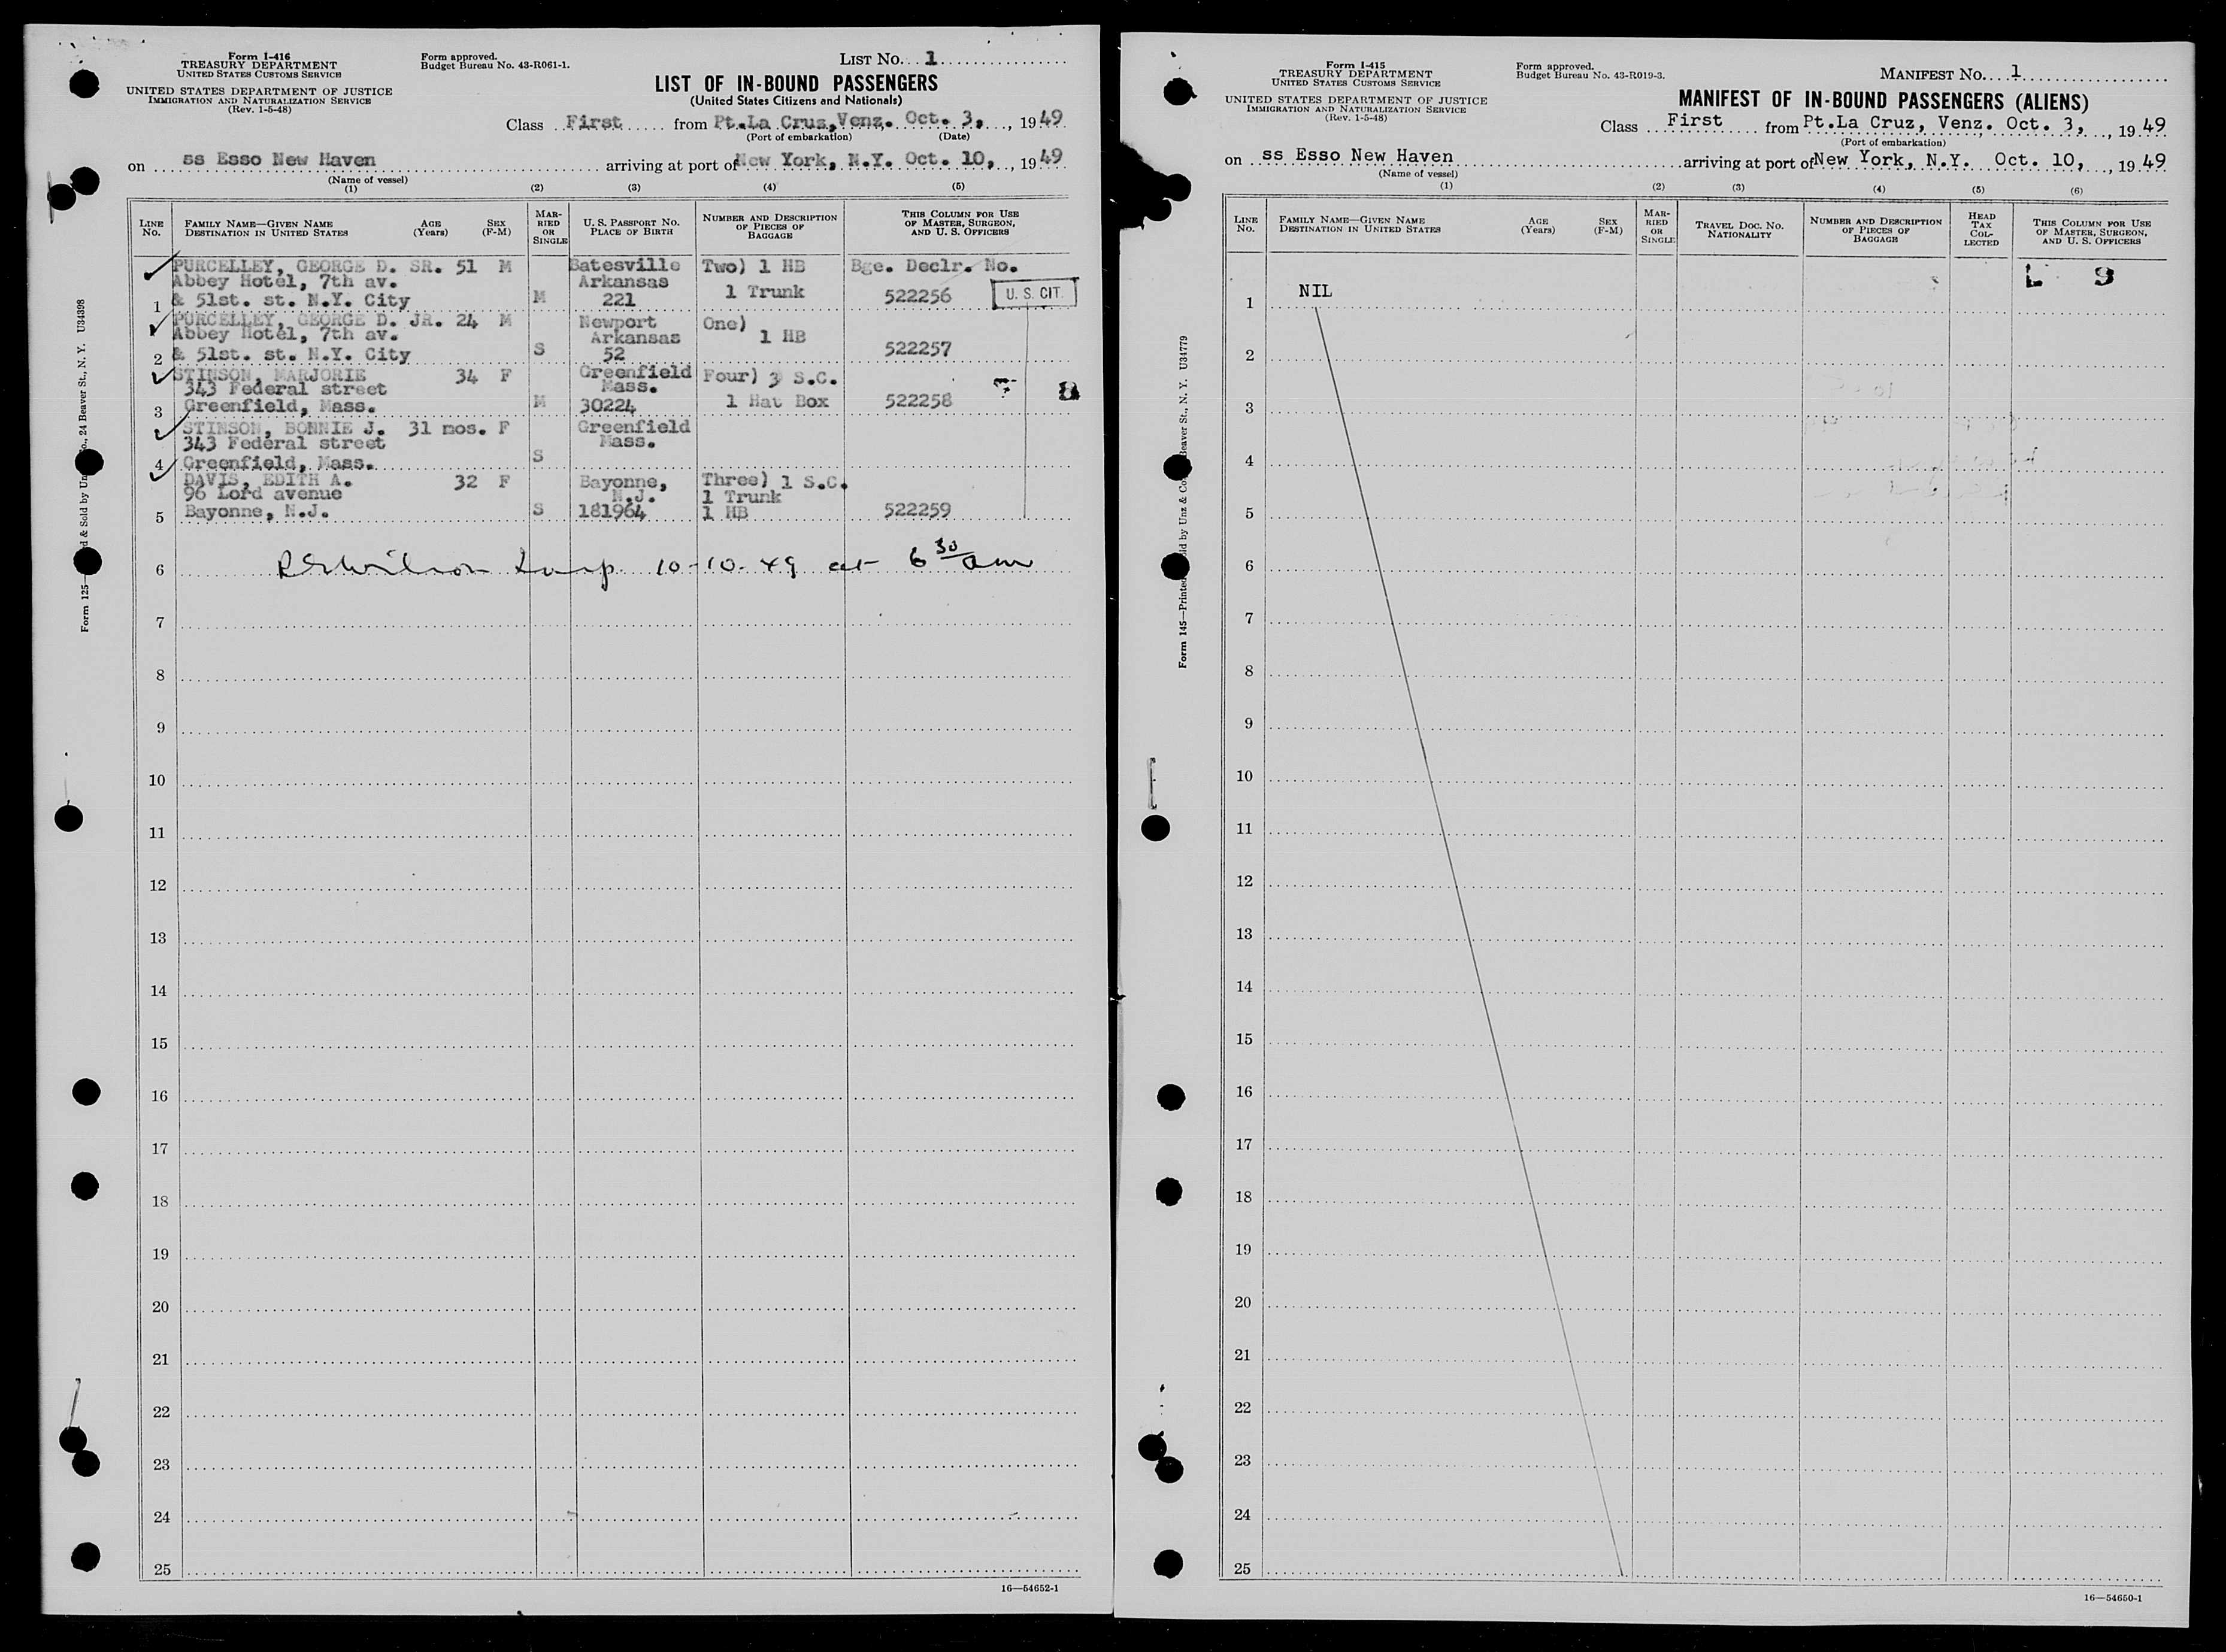 Form I-416
TREASURY DEPARTMENT
UNITED STATES CUSTOMS SERVICE
UNITED STATES DEPARTMENT OF JUSTICE
IMMIGRATION AND NATURALIZATION SERVICE
(Rev. 1-5-48)
Form approved.
Budget Bureau No. 43-R061-1.
LIST No. 1
LIST OF IN-BOUND PASSENGERS
(United States Citizens and Nationals)
Class First from Pt.La Cruz,Venz. Oct. 3, , 1949
(Port of embarkation) (Date)
on ss Esso New Haven arriving at port of New York, N.Y. Oct. 10, , 1949
(Name of vessel)
(1) (2) (3) (4) (5)
LINE No. FAMILY NAME—GIVEN NAME DESTINATION IN UNITED STATES AGE (Years) SEX (F-M) MARRIED OR SINGLE U. S. PASSPORT NO. PLACE OF BIRTH NUMBER AND DESCRIPTION OF PIECES OF BAGGAGE THIS COLUMN FOR USE OF MASTER, SURGEON, AND U. S. OFFICERS
PURCELLEY, GEORGE D. SR. 51 M Batesville Two) 1 HB Bge. Declr. No.
Abbey Hotel, 7th av. Arkansas 1 Trunk
1 & 51st. st. N.Y. City M 221 522256 U. S. CIT.
PURCELLEY, GEORGE D. JR. 24 M Newport One)
Abbey Hotel, 7th av. Arkansas 1 HB
2 & 51st. st. N.Y. City S 52 522257
STINSON, MARJORIE 34 F Greenfield Four) 3 S.C.
343 Federal street Mass. 8
3 Greenfield, Mass. M 30224 1 Hat Box 522258
STINSON, BONNIE J. 31 mos. F Greenfield
343 Federal street Mass.
4 Greenfield, Mass. S
DAVIS, EDITH A. 32 F Bayonne, Three) 1 S.C.
96 Lord avenue N.J. 1 Trunk
5 Bayonne, N.J. S 181964 1 HB 522259
6 Wilson Insp. 10-10-49 at 6 30 am
7
8
9
10
11
12
13
14
15
16
17
18
19
20
21
22
23
24
25
16—54652-1
Form 125— d & Sold by Un o., 24 Beaver St., N. Y. U34398
Form I-415
TREASURY DEPARTMENT
UNITED STATES CUSTOMS SERVICE
UNITED STATES DEPARTMENT OF JUSTICE
IMMIGRATION AND NATURALIZATION SERVICE
(Rev. 1-5-48)
Form approved.
Budget Bureau No. 43-R019-3.
MANIFEST No. 1
MANIFEST OF IN-BOUND PASSENGERS (ALIENS)
Class First from Pt.La Cruz, Venz. Oct. 3, , 1949
(Port of embarkation)
on ss Esso New Haven arriving at port of New York, N.Y. Oct. 10, , 1949
(Name of vessel)
(1) (2) (3) (4) (5) (6)
LINE No. FAMILY NAME—GIVEN NAME DESTINATION IN UNITED STATES AGE (Years) SEX (F-M) MARRIED OR SINGLE TRAVEL DOC. NO. NATIONALITY NUMBER AND DESCRIPTION OF PIECES OF BAGGAGE HEAD TAX COLLECTED THIS COLUMN FOR USE OF MASTER, SURGEON, AND U. S. OFFICERS
L 9
1 NIL
2
3
4
5
6
7
8
9
10
11
12
13
14
15
16
17
18
19
20
21
22
23
24
25
16—54650-1
Form 145—Printed ld by Unz & Co Beaver St., N. Y. U34779